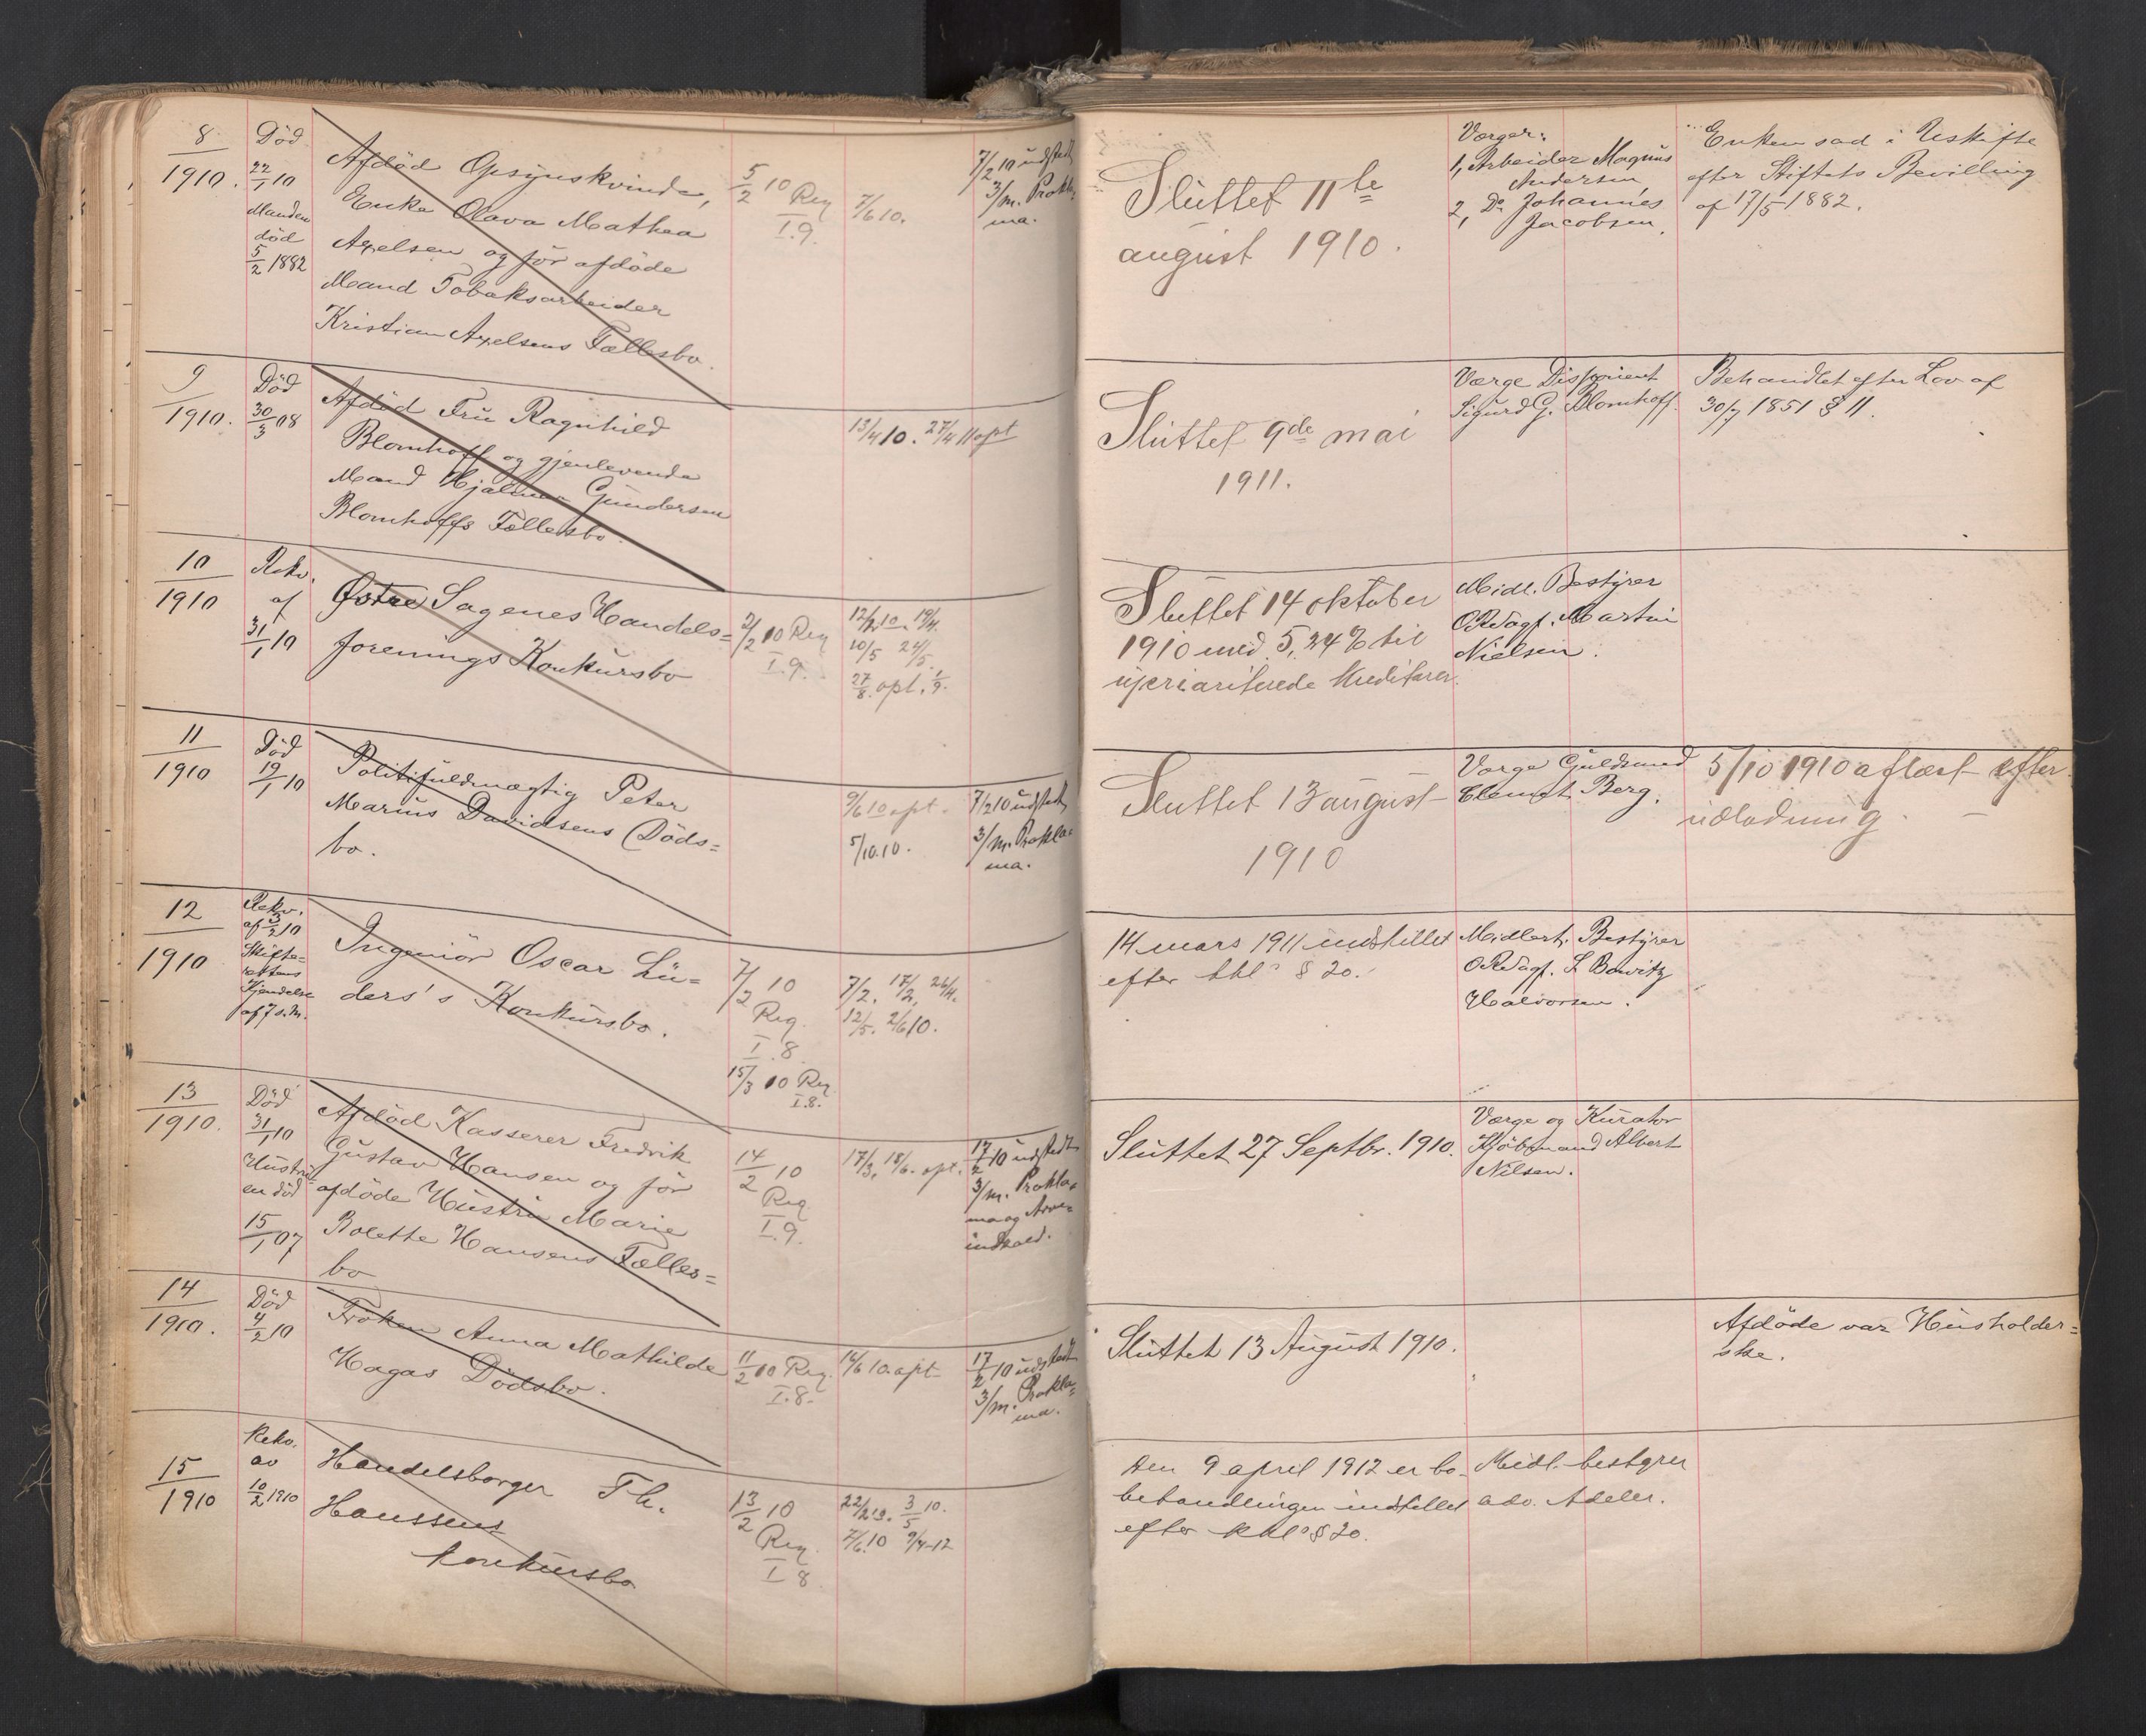 8
1910.
Död
22/1 10
Manden
död
5/2 1882
Afdöd Opsynskvinde,
Enke Olava Mathea
Axelsen og för afdöde
Mand Tobaksarbeider
Kristian Axelsens Fællesbo.
5/2 10 Reg
I.9.
7/6 10.
7/2 10 udstedt
3/m. Prokla-
ma.
Sluttet 11te
august 1910.
Værger:
1, Arbeider Magnus
Andersen,
2, Do Johannes
Jacobsen.
Enken sad i Uskifte
efter Stiftets Bevilling
af 17/5 1882.
9
1910.
Död
30/3 08
Afdöd Fru Ragnhild
Blomhoff og gjenlevende
Mand Hjalmar Gundersen
Blomhoffs Fællesbo.
13/4 10. 27/4 11 opt
Sluttet 9de mai
1911.
Værge Disponent
Sigurd G. Blomhoff.
Behandlet efter Lov af
30/7 1851 § 11.
10
1910
Rekv.
af
31/1 10
Østre Sagenes Handels=
forenings Konkursbo
2/2 10 Reg
I.9.
12/2 10. 19/4.
10/5 24/5.
27/8. opt. 1/9.
Sluttet 14 oktober
1910 med 5,24 % til
uprioriterede kreditorer.
Midl. Bestyrer
ORSagf. Martin
Nielsen.
11
1910
Död
19/1 10
Politifuldmægtig Peter
Marius Davidsens Döds=
bo.
9/6 10 opt.
5/10.10.
7/2 10 udstedt
3/m. Prokla=
ma.
Sluttet 13 august
1910
Værge Guldsmed
Clemet Berg.
5/10 1910 aflæst efter
udlodning.
12
1910
Rekv.
af 3/2 10
Skifte=
rettens
Kjendelse
af 7 s.M.
Ingeniör Oscar Lü=
ders's Konkursbo.
7/2 10
Reg.
I.8
15/3 10 Reg.
I.8.
7/2. 17/2, 26/4.
12/5. 2/6 10.
14 mars 1911 indstillet
efter kkl § 20.
Midlert. Bestyrer
ORSagf. S. Bowitz
Halvorsen.
13
1910.
Död
31/1 10
Hustru=
en död
15/1 07
Afdöd Kasserer Fredrik
Gustav Hansen og för
afdöde Hustru Marie
Bolette Hansens Fælles=
bo
14/2 10
Reg
I.9.
17/3, 18/6. opt.
17/2 10 udstedt
3/m. Prokla=
ma og Arve=
indkald.
Sluttet 27 Septbr. 1910.
Værge og Kurator
Kjöbmand Albert
Nilsen.
14
1910.
Död
4/2 10
Fröken Anna Mathilde
Hagas Dödsbo.
11/2 10 Reg.
I.8.
14/6 10. opt
17/2 10 udstedt
3/m. Prokla=
ma.
Sluttet 13 August 1910.
Afdöde var Husholder=
ske.
15
1910
Rekv.
av
10/2 1910
Handelsborger Th.
Hanssens
konkursbo
13/2 10
Reg.
I 8
3/5 10.
7/6.10 9/4-12
Den 9 april 1912 er bo-
behandlingen indstillet
efter kkl § 20.
Midl. bestyrer
adv. Adeler.